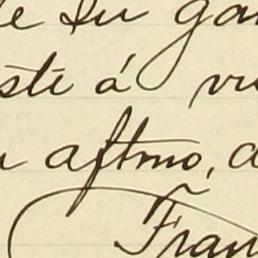 Su ga
sté á vu
aftmo, a
Fran